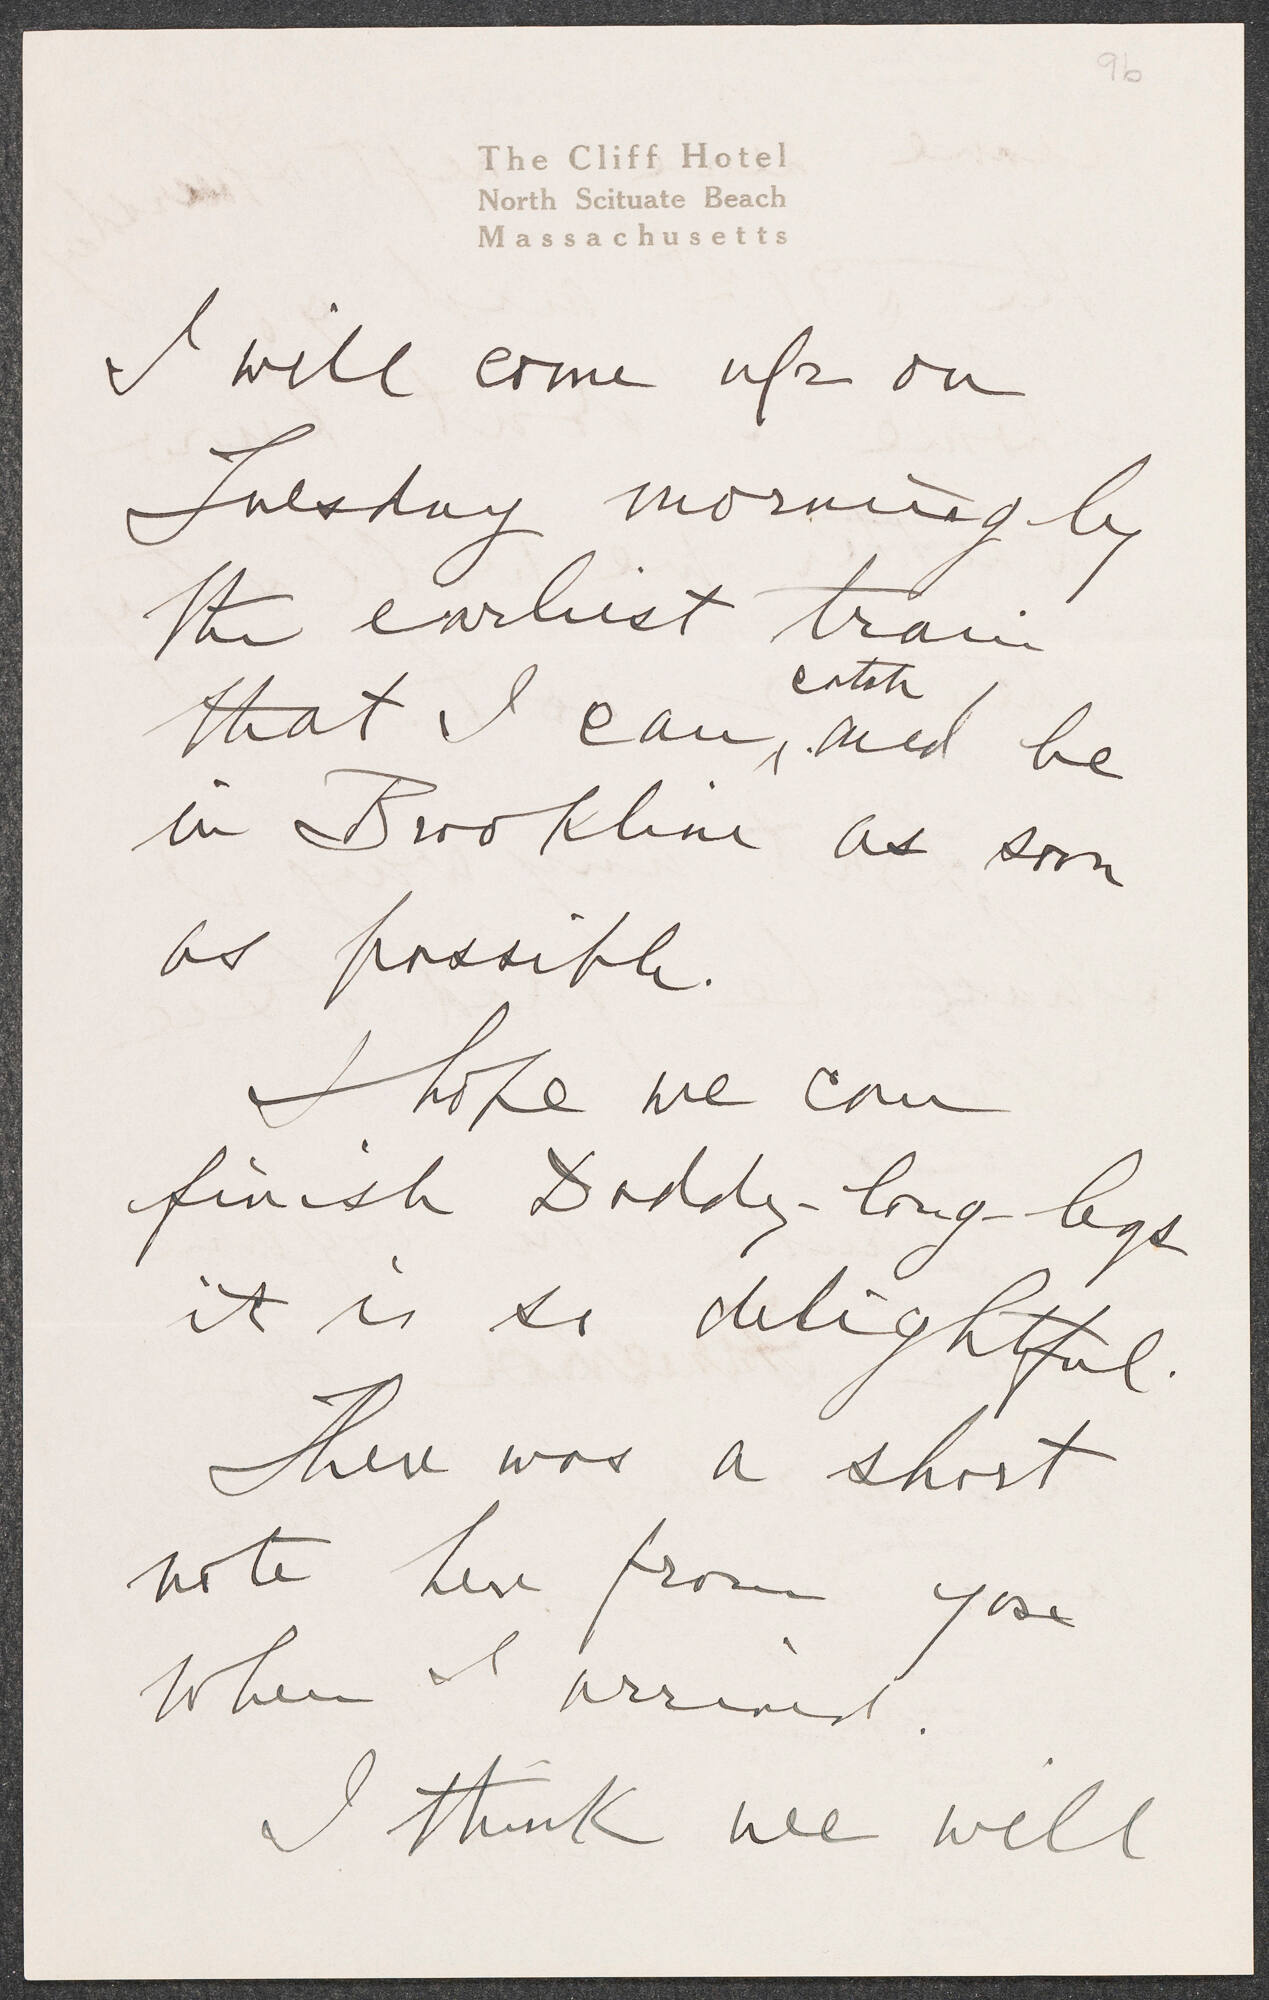 96
The Cliff Hotel
North Scituate Beach
Massachusetts
I will come up on
Tuesday morning by
the earliest train
that I can, catch and be
in Brookline as soon
as possible.
I hope we can
finish Daddy-long-legs
it is so delightful.
There was a short
note here from you
when I arrived.
I think we will